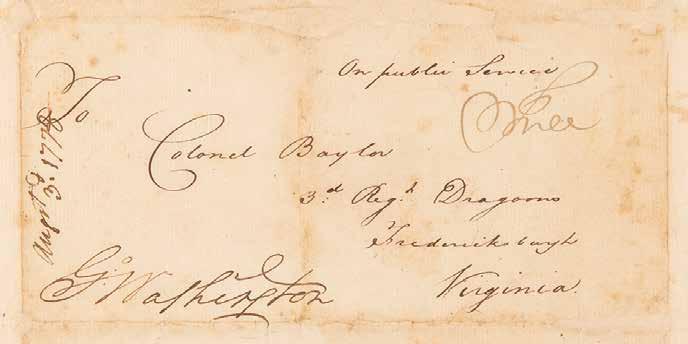 On public Service
Free
To
Colonel Baylor
3.d Reg.t Dragoons
Fredericksburgh
Virginia.
Go: Washington